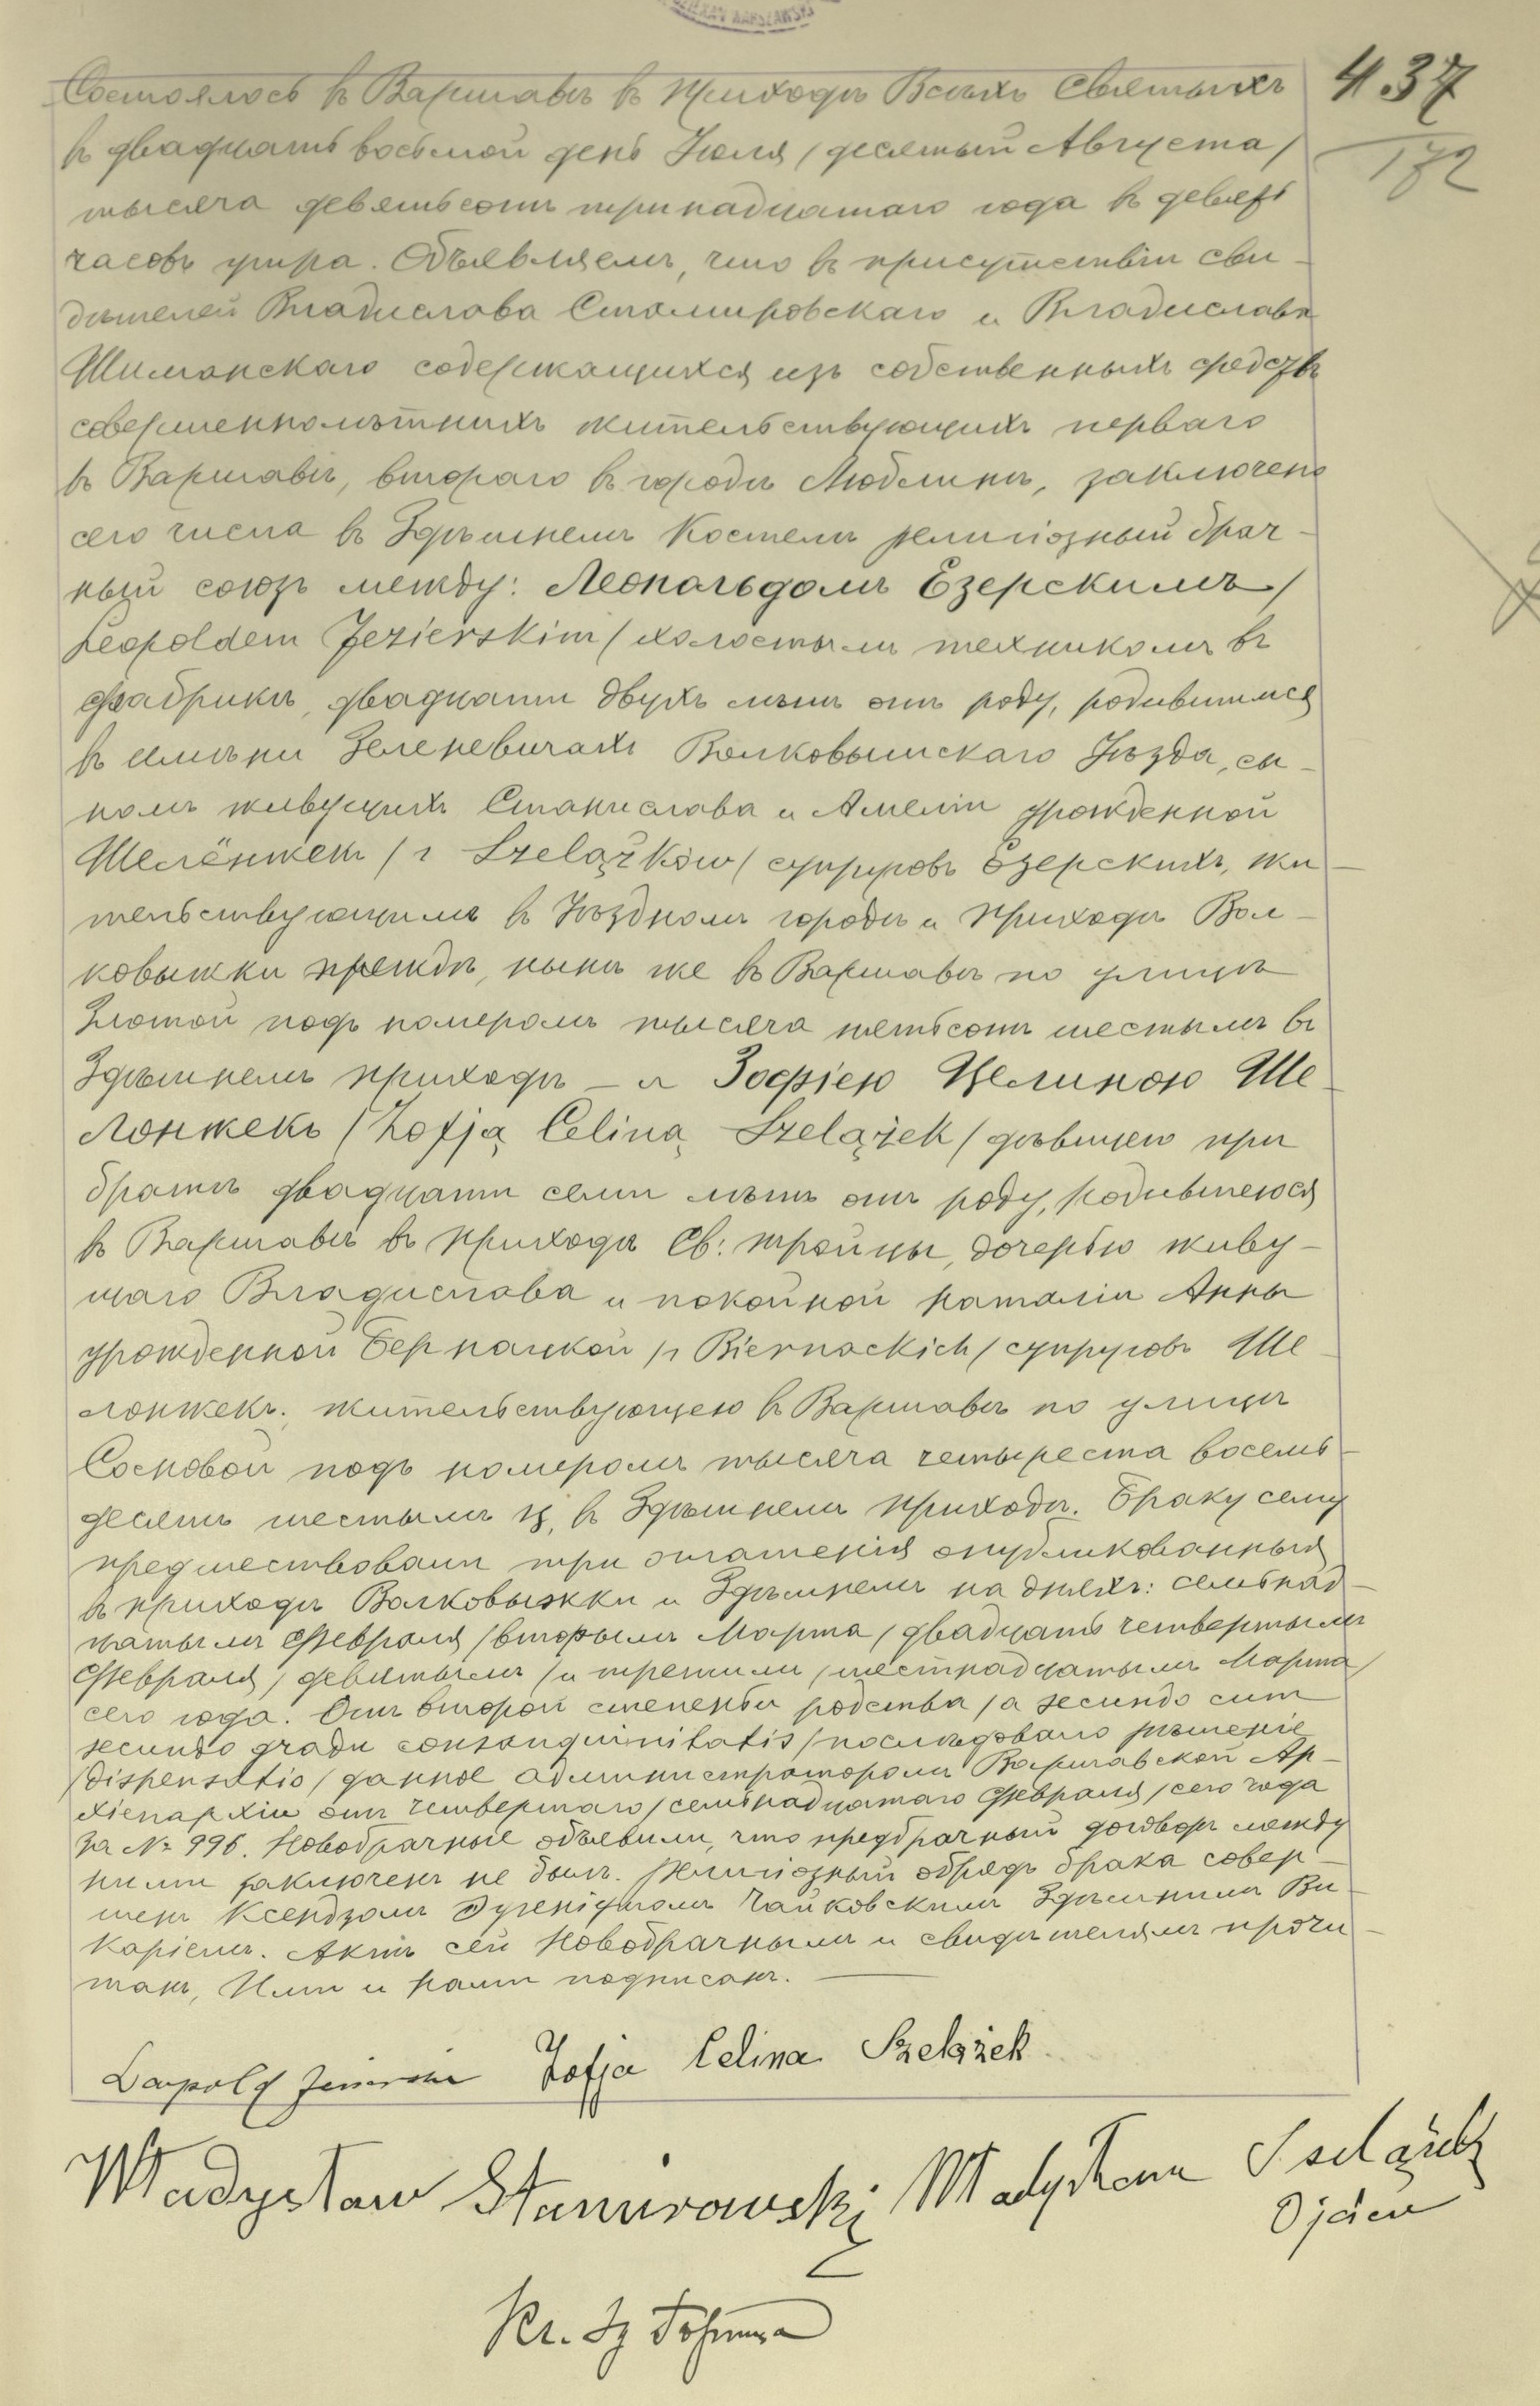 437
172
Состоялось въ Варшавѣ въ приходѣ Всѣхъ Святыхъ
въ двадцать восьмой день Іюля /десятый Августа/
тысяча девятьсотъ тринадцатаго года въ девять
часовъ утра. Объявляемъ, что въ присутствіи сви-
дѣтелей Владислава Стамировскаго и Владислава
Шиманскаго содержащихся изъ собственныхъ средствъ
совершеннолѣтнихъ жительствующихъ перваго
въ Варшавѣ, втораго въ городѣ Люблинѣ, заключенъ
сего числа въ здѣшнемъ Костелѣ религіозный брач-
ный союзъ между: Леопольдомъ Езерскимъ/
Leopoldem Jezierskim/ холостымъ техникомъ въ
фабрикѣ, двадцати двухъ лѣтъ отъ роду, родившимся
въ имѣніи Зеленевичахъ Волковышскаго Уѣзда, сы-
номъ живущихъ Станислава и Амеліи урожденной
Шелёнжекъ /z Szelążków/ супруговъ Езерскихъ, жи-
тельствующимъ въ Уѣздномъ городѣ и приходѣ Вол-
ковыжки прежде, нынѣ же въ Варшавѣ по улицѣ
Злотой подъ номеромъ тысяча пятьсотъ шестымъ въ
здѣшнемъ приходѣ – и Зофіею Целиною Ше-
лонжекъ /Zofją Celiną Szelążek/ дѣвицею при
братѣ двадцати семи лѣтъ отъ роду, родившеюся
въ Варшавѣ въ приходѣ Св: Троицы, дочерью живу-
щаго Владислава и покойной Наталіи Анны
урожденной Бернацкой /z Biernackich/ супруговъ Ше-
лонжекъ. жительствующею въ Варшавѣ по улицѣ
Сосновой подъ номеромъ тысяча четыреста восемь-
десятъ шестымъ ц, въ здѣшнемъ приходѣ. Браку сему
предшествовали три оглашенія опубликованныя
въ приходѣ Волковыжки и здѣшнемъ на дняхъ: семнад-
цатымъ Февраля /вторымъ Марта/ двадцать четвертымъ
Февраля /девятымъ/ и третьимъ /шестнадцатымъ Марта/
сего года. Отъ второй степени родства /a secundo cum
secundo gradu consanguinitatis/ послѣдовало рѣшеніе
/dispensatio/ данное администраторомъ Варшавской Ар-
хіепархіи отъ четвертаго /семнадцатаго Февраля/ сего года
за № 996. Новобрачные объявили, что предбрачный договоръ между
ними заключенъ не былъ. Религіозный обрядъ брака совер-
шенъ Ксендзомъ Чайковскимъ здѣшнимъ Ви-
каріемъ. Актъ сей Новобрачнымъ и свидѣтелямъ прочи-
танъ, Ими и Нами подписанъ.
Leopold Jezierski Zofja Celina Szelążek
Władysław Stamirowski Władysław Szelążek
Ojciec